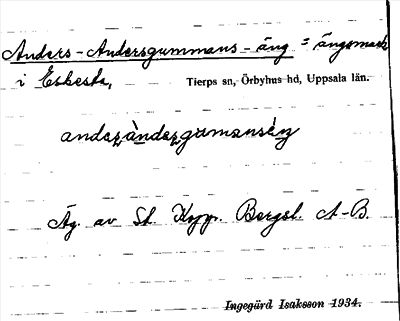 Anders-Andersgummans-äng = ängsmark
i Eskesta, Tierps sn, Örbyhus hd, Uppsala län.
andeʐàndeʐgumansèŋ
Äg. av St. Kopp. Bergsl. A-B.
Ingegärd Isaksson 1934.